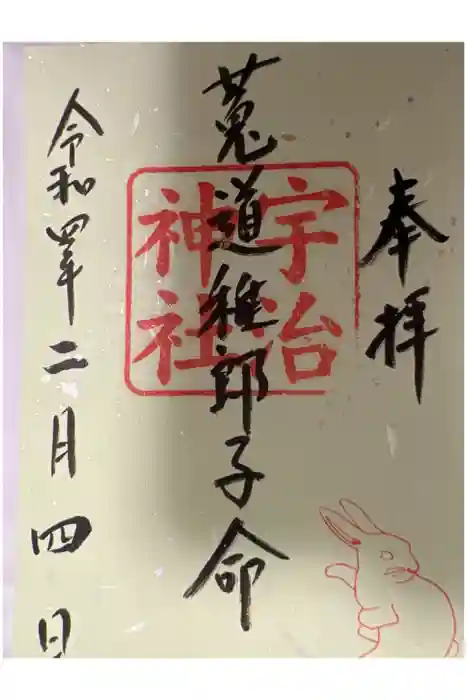 奉拝
菟道稚郎子命
宇治
神社
令和四年二月四日